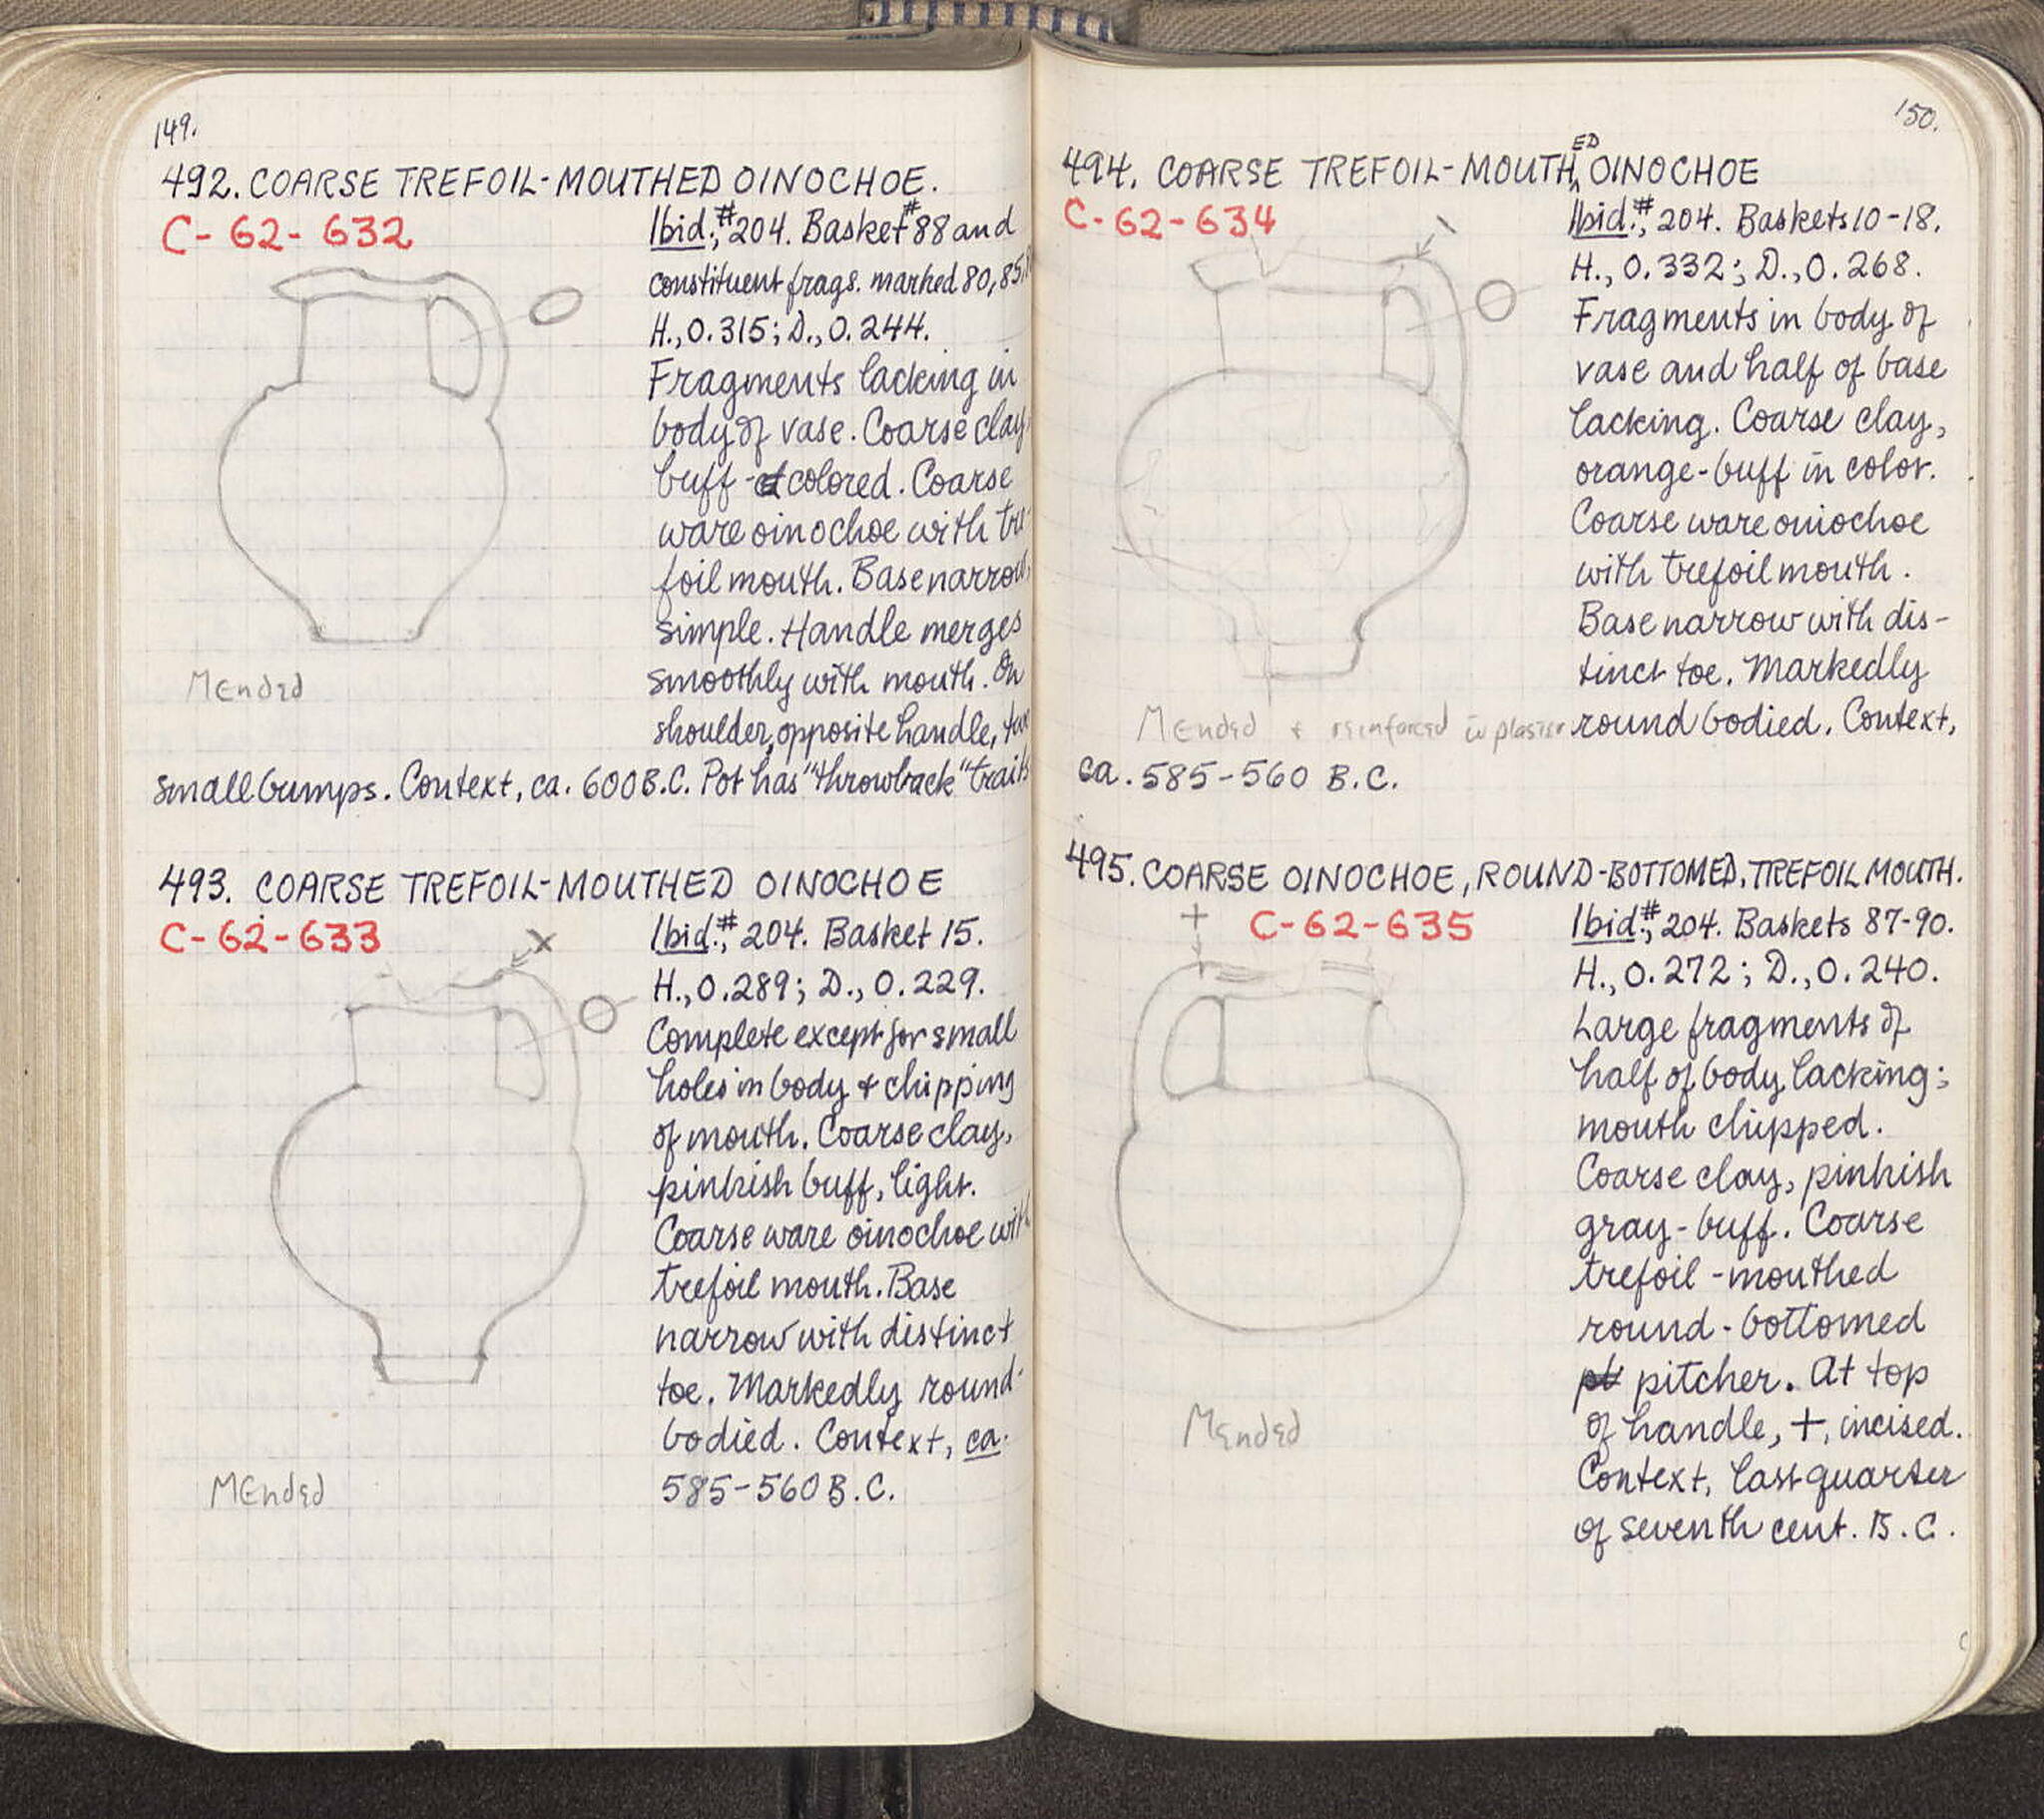 149.
492. COARSE TREFOIL-MOUTHED OINOCHOE.
C-62-632
Ibid., #204. Basket #88 and
constituent frags. marked 80, 85,
H., 0.315; D., 0.244.
Fragments lacking in
body of vase. Coarse clay
buff-colored. Coarse
ware oinochoe with tre
foil mouth. Base narrow,
simple. Handle merges
smoothly with mouth. On
shoulder, opposite handle, two
small bumps. Context, ca. 600 B.C. Pot has "throwback" traits
Mended
493. COARSE TREFOIL-MOUTHED OINOCHOE
C-62-633
X
Ibid., #204. Basket 15.
H., 0.289; D., 0.229.
Complete except for small
holes in body & chipping
of mouth. Coarse clay,
pinkish buff, light.
Coarse ware oinochoe with
trefoil mouth. Base
narrow with distinct
toe. Markedly round-
bodied. Context, ca.
585-560 B.C.
Mended
150.
494. COARSE TREFOIL-MOUTHED OINOCHOE
C-62-634
Ibid., #204. Baskets 10-18.
H., 0.332; D., 0.268.
Fragments in body of
vase and half of base
lacking. Coarse clay,
orange-buff in color.
Coarse ware oinochoe
with trefoil mouth.
Base narrow with dis-
tinct toe. Markedly
round bodied. Context,
ca. 585-560 B.C.
Mended & reinforced in plaster
495. COARSE OINOCHOE, ROUND-BOTTOMED, TREFOIL MOUTH.
+
C-62-635
Ibid., #204. Baskets 87-90.
H., 0.272; D., 0.240.
Large fragments of
half of body lacking;
mouth chipped.
Coarse clay, pinkish
gray-buff. Coarse
trefoil-mouthed
round-bottomed
pt pitcher. At top
of handle, +, incised.
Context, last quarter
of seventh cent. B.C.
Mended